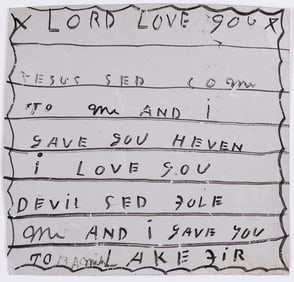 X LORD LOVE YOU X
JESUS SED COME
TO ME AND I
GAVE YOU HEVEN
i LOVE YOU
DEVIL SED FOLE
ME AND i GAVE YOU
TO LAKE FIR